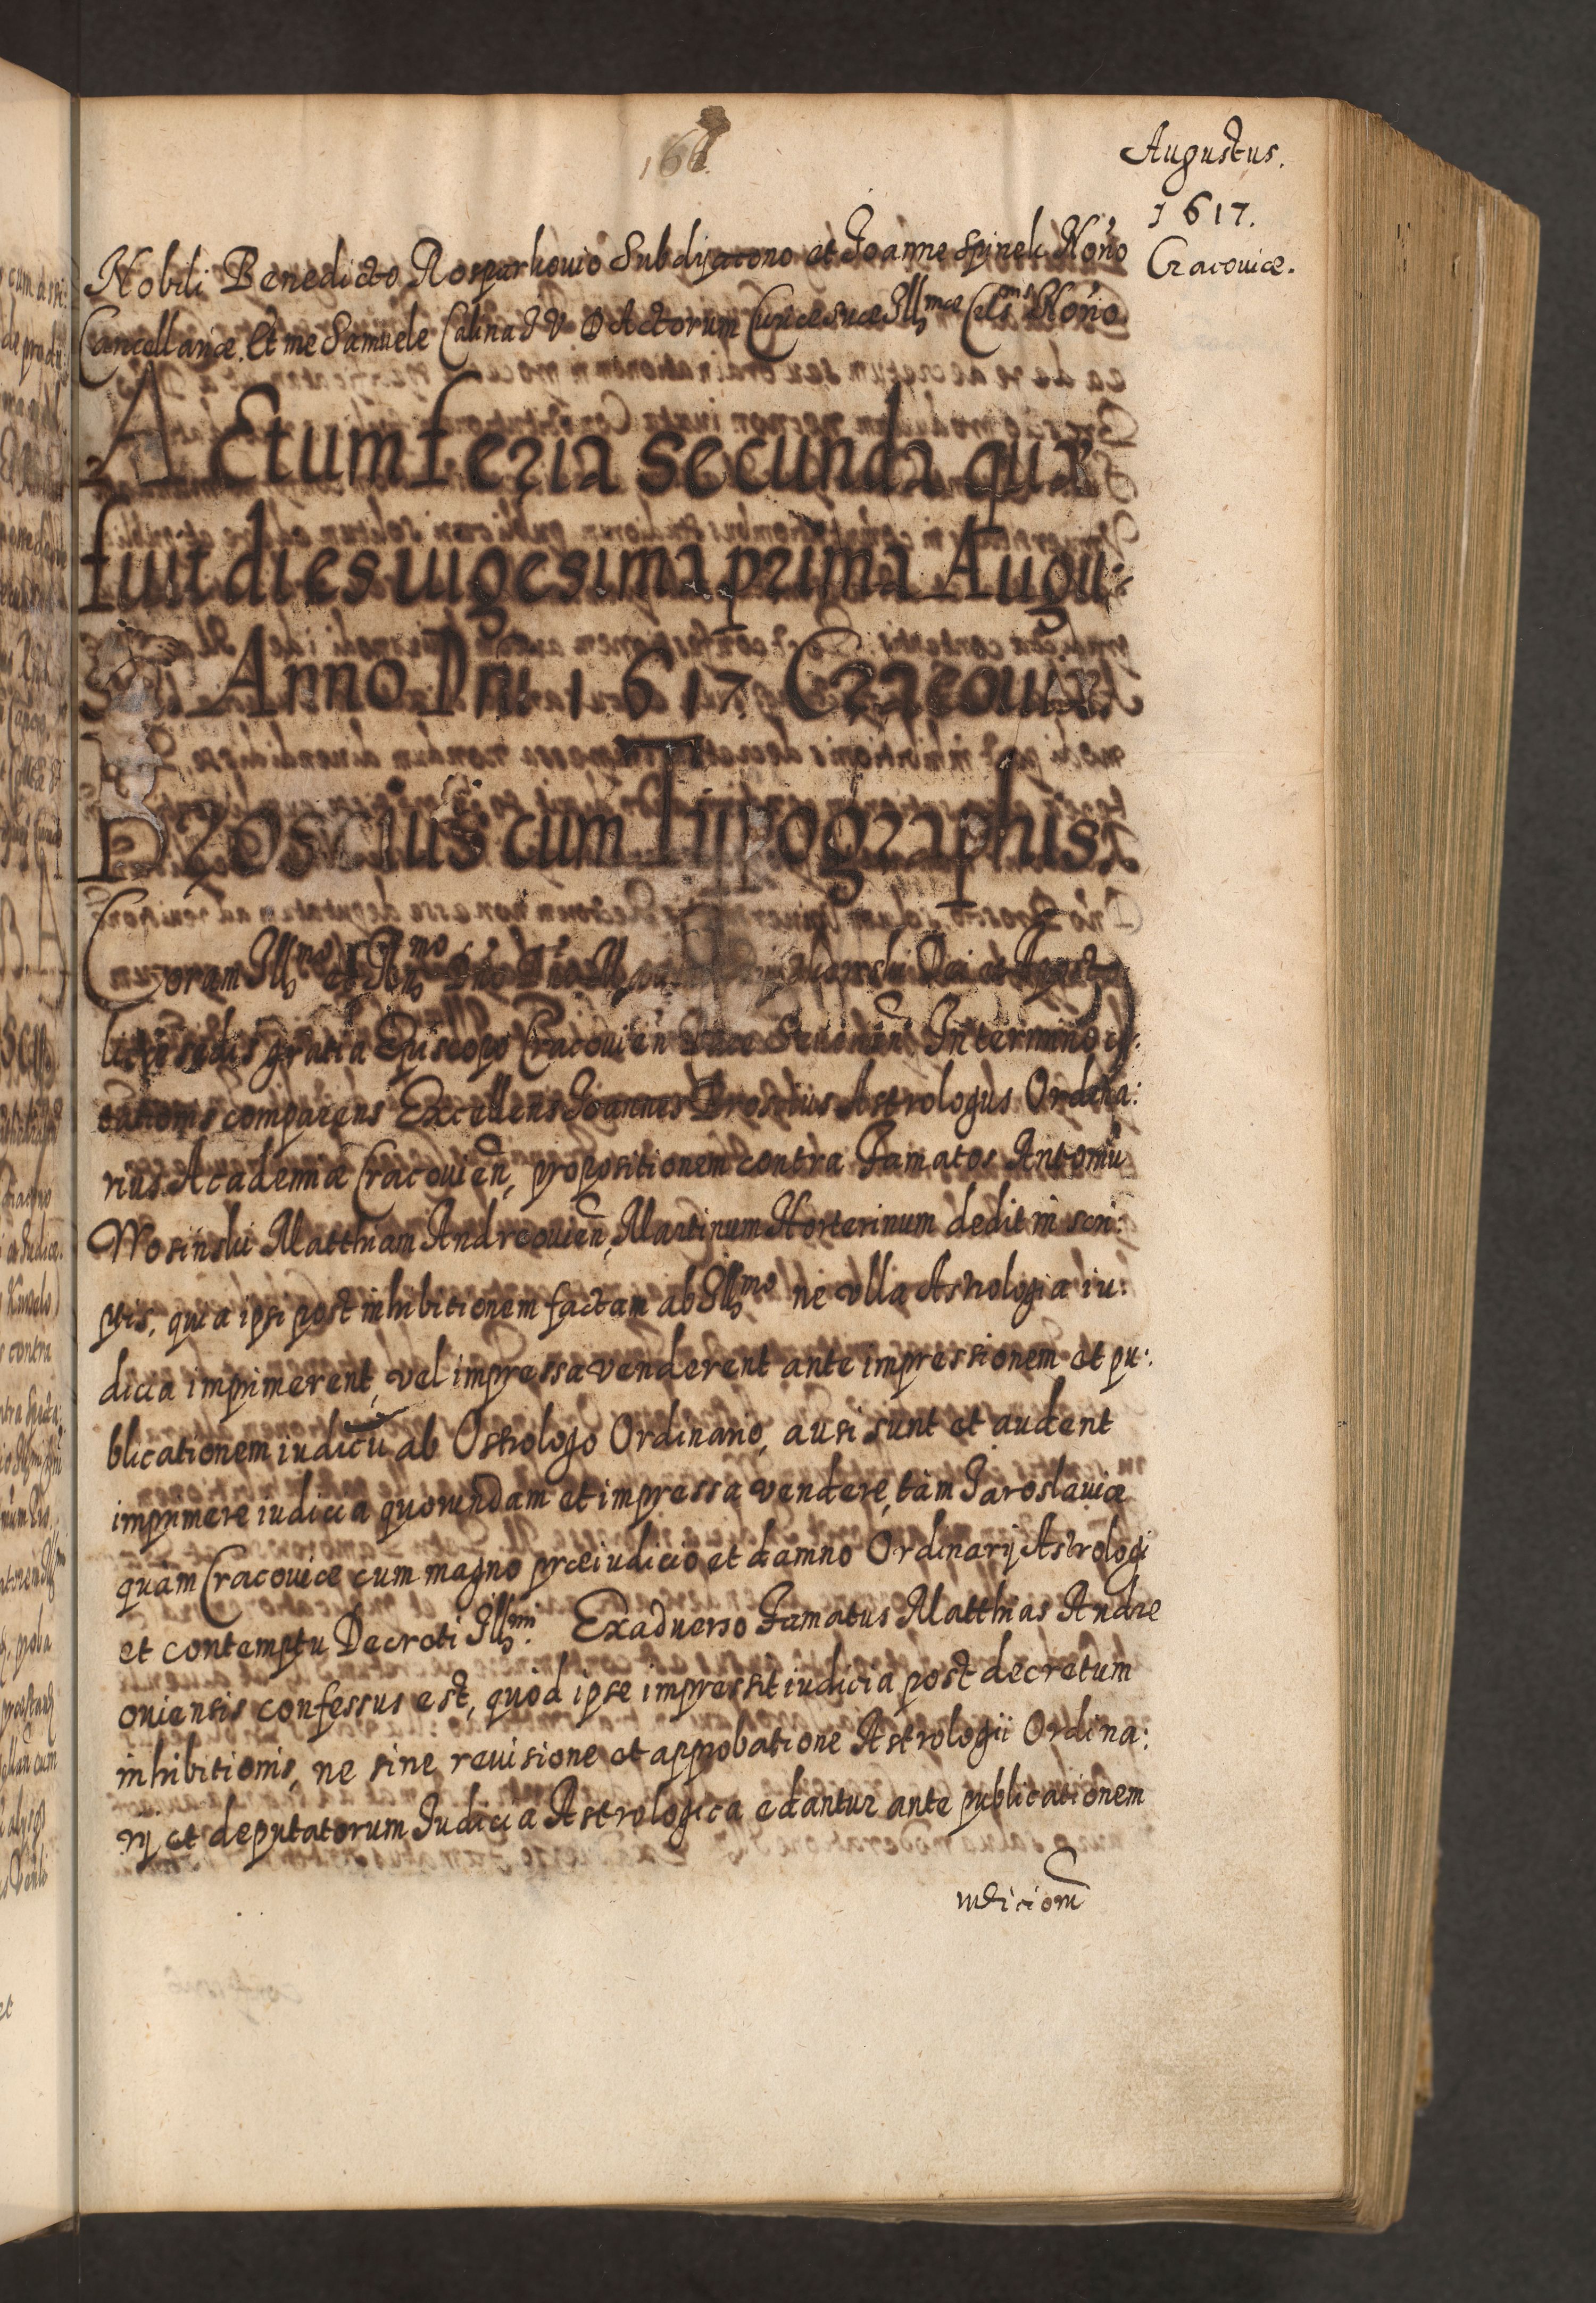 166
Augustus.
1617.
Cracouiæ.
Nobili Benedicto Rosparhouio Subdiacono et Joanne Spinek Noŕio
Cancellariæ. Et me Samuele Calina J V D Actorum Curiæ suæ Illmæ Celsnis Noŕio
Actum feria secunda quæ
fuit dies uigesima prima Augu:
Anno Dni 1617 Cracouiæ.
Broscius cum Typographis.
Coram Illmo et Rndmo Dno Dno Dei et Aposto
licæ sedis gratia Episcopo Cracouien Duce Seuerien In termino ci:
tationis comparens Excellens Joannes Broscius Astrologus Ordina:
rius Academiæ Cracouien, propositionem contra Famatos Antoniū
Wosinski Matthiam Andreouien, Martinum Horterinum dedit in scri:
ptis, quia ipsi post inhibitionem factam ab Illmo ne vlla Astrologia iu:
dicia imprimerent, vel impressa venderent ante impressionem et pu:
blicationem iudicii ab Ostrologo Ordinario, ausi sunt et audent
imprimere iudicia quorundam et impressa vendere, tàm Jaroslauiæ
quàm Cracouiæ cum magno præiudicio et damno Ordinarij Astrologi
et contemptu Decreti Illmi. Exaduerso Famatus Matthias Andre
ouiensis confessus est, quòd ipse impressit iudicia post decretum
inhibitionis, ne sine reuisione et approbatione Astrologii Ordina:
rij et deputatorum Judicia Astrologica edantur ante publicationem
iudiciorū